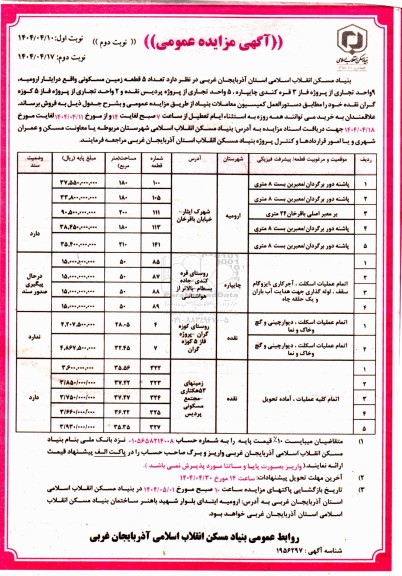 ((آگهی مزایده عمومی)) (( نوبت دوم ))
نوبت اول: ۱۴۰۴/۰۴/۱۰
نوبت دوم: ۱۴۰۴/۰۴/۱۷
بنیاد مسکن انقلاب اسلامی استان آذربایجان غربی در نظر دارد تعداد ۵ قطعه زمین مسکونی واقع درایثار ارومیه،
۴واحد تجاری از پروژه فاز ۳ قره کندی چایپاره ، ۵ واحد تجاری از پروژه پردیس نقده و ۲ واحد تجاری از پروژه فاز ۵ کوزه
گران نقده خود را مطابق دستورالعمل کمیسیون معاملات بنیاد از طریق مزایده عمومی و بشرح جدول ذیل به فروش برساند.
علاقمندان به خرید می توانند همه روزه به استثناء ایام تعطیل از ساعت ۷ صبح لغایت ۱۲ و از مورخ ۱۴۰۴/۰۴/۱۱ لغایت مورخ
۱۴۰۴/۰۴/۱۸ جهت دریافت اسناد مزایده به آدرس: بنیاد مسکن انقلاب اسلامی شهرستان مربوطه یا معاونت مسکن و عمران
شهری و یا امور قراردادها و کنترل پروژه بنیاد مسکن انقلاب اسلامی استان آذربایجان غربی مراجعه فرمایند.
ردیف موقعیت و مرغوبیت قطعه/ پیشرفت فیزیکی شهرستان آدرس شماره قطعه مساحت(متر مربع) مبلغ پایه (ریال) وضعیت سند
۱ پاشنه دور برگردان/معبربن بست ۸ متری ارومیه شهرک ایثار- خیابان باقرخان ۱۰۰ ۱۸۰ ۳۷,۵۵۰,۰۰۰,۰۰۰ دارد
۲ پاشنه دور برگردان/معبربن بست ۸ متری ۱۰۵ ۱۸۰ ۳۳,۸۰۰,۰۰۰,۰۰۰
۳ بر معبر اصلی باقرخان ۲۴ متری ۱۱۱ ۲۰۰ ۹۰,۵۰۰,۰۰۰,۰۰۰
۴ پاشنه دور برگردان/معبربن بست ۸ متری ۱۱۳ ۱۸۰ ۳۸,۴۵۰,۰۰۰,۰۰۰
۵ پاشنه دور برگردان/معبربن بست ۸ متری ۱۴۱ ۲۱۰ ۳۵,۴۰۰,۰۰۰,۰۰۰
۱ اتمام عملیات اسکلت ، آجرکاری ،ایزوگام سقف ، لوله گذاری جهت هدایت آب باران و یک حلقه چاه چایپاره روستای قره کندی -جاده بسطام -بالاتر از هواشناسی ۸۵ ۵۰ ۱۵,۰۰۰,۰۰۰,۰۰۰ درحال پیگیری صدور سند
۲ ۸۷ ۵۰ ۱۵,۰۰۰,۰۰۰,۰۰۰
۳ ۸۸ ۵۰ ۱۵,۰۰۰,۰۰۰,۰۰۰
۴ ۸۹ ۵۰ ۱۵,۰۰۰,۰۰۰,۰۰۰
۱ اتمام عملیات اسکلت ، دیوارچینی و گچ وخاک و نما نقده روستای کوزه گران -پروژه فاز ۵ کوزه گران ۴ ۲۸.۰۵ ۴,۲۰۷,۵۰۰,۰۰۰ ندارد
۲ اتمام عملیات اسکلت ، دیوارچینی و گچ وخاک و نما ۷ ۳۲.۴۵ ۴,۸۶۷,۵۰۰,۰۰۰
۱ اتمام کلیه عملیات ، آماده تحویل نقده زمینهای ۵۳هکتاری -مجتمع مسکونی پردیس ۳۲۲ ۳۵.۵۶ ۳,۶۰۰,۰۰۰,۰۰۰ دارد
۲ ۳۲۳ ۳۷.۲۲ ۳/۸۵۰/۰۰۰/۰۰۰
۳ ۳۲۴ ۳۷.۲۷ ۳/۷۵۰/۰۰۰/۰۰۰
۴ ۳۲۵ ۳۶.۲۲ ۳/۶۶۰/۰۰۰/۰۰۰
۵ ۳۲۷ ۳۵.۳۵ ۳/۹۳۰/۰۰۰/۰۰۰
۱) متقاضیان میبایست ۱۰٪ قیمت پایه را به شماره حساب ۰۱۰۵۶۵۸۲۱۴۰۰۸ نزد بانک ملی بنام بنیاد
مسکن انقلاب اسلامی آذربایجان غربی واریز و برگ صاحب حساب را در پاکت الف پیشنهاد قیمت
ارائه نمایند.( واریز بصورت پایا و ساتنا مورد پذیرش نمی باشد )
۲) آخرین مهلت تحویل پیشنهادات: ساعت ۱۴ مورخ ۱۴۰۴/۰۴/۳۰
۳) تاریخ بازگشایی پاکتهای مزایده ساعت ۱۰ صبح مورخ ۱۴۰۴/۰۵/۰۱ در بنیاد مسکن انقلاب اسلامی
استان آذربایجان غربی به آدرس: ارومیه ابتدای بلوار شهید باهنر ساختمان بنیاد مسکن انقلاب
اسلامی استان آذربایجان غربی خواهد بود.
روابط عمومی بنیاد مسکن انقلاب اسلامی آذربایجان غربی
شناسه آگهی : ۱۹۵۶۲۹۷